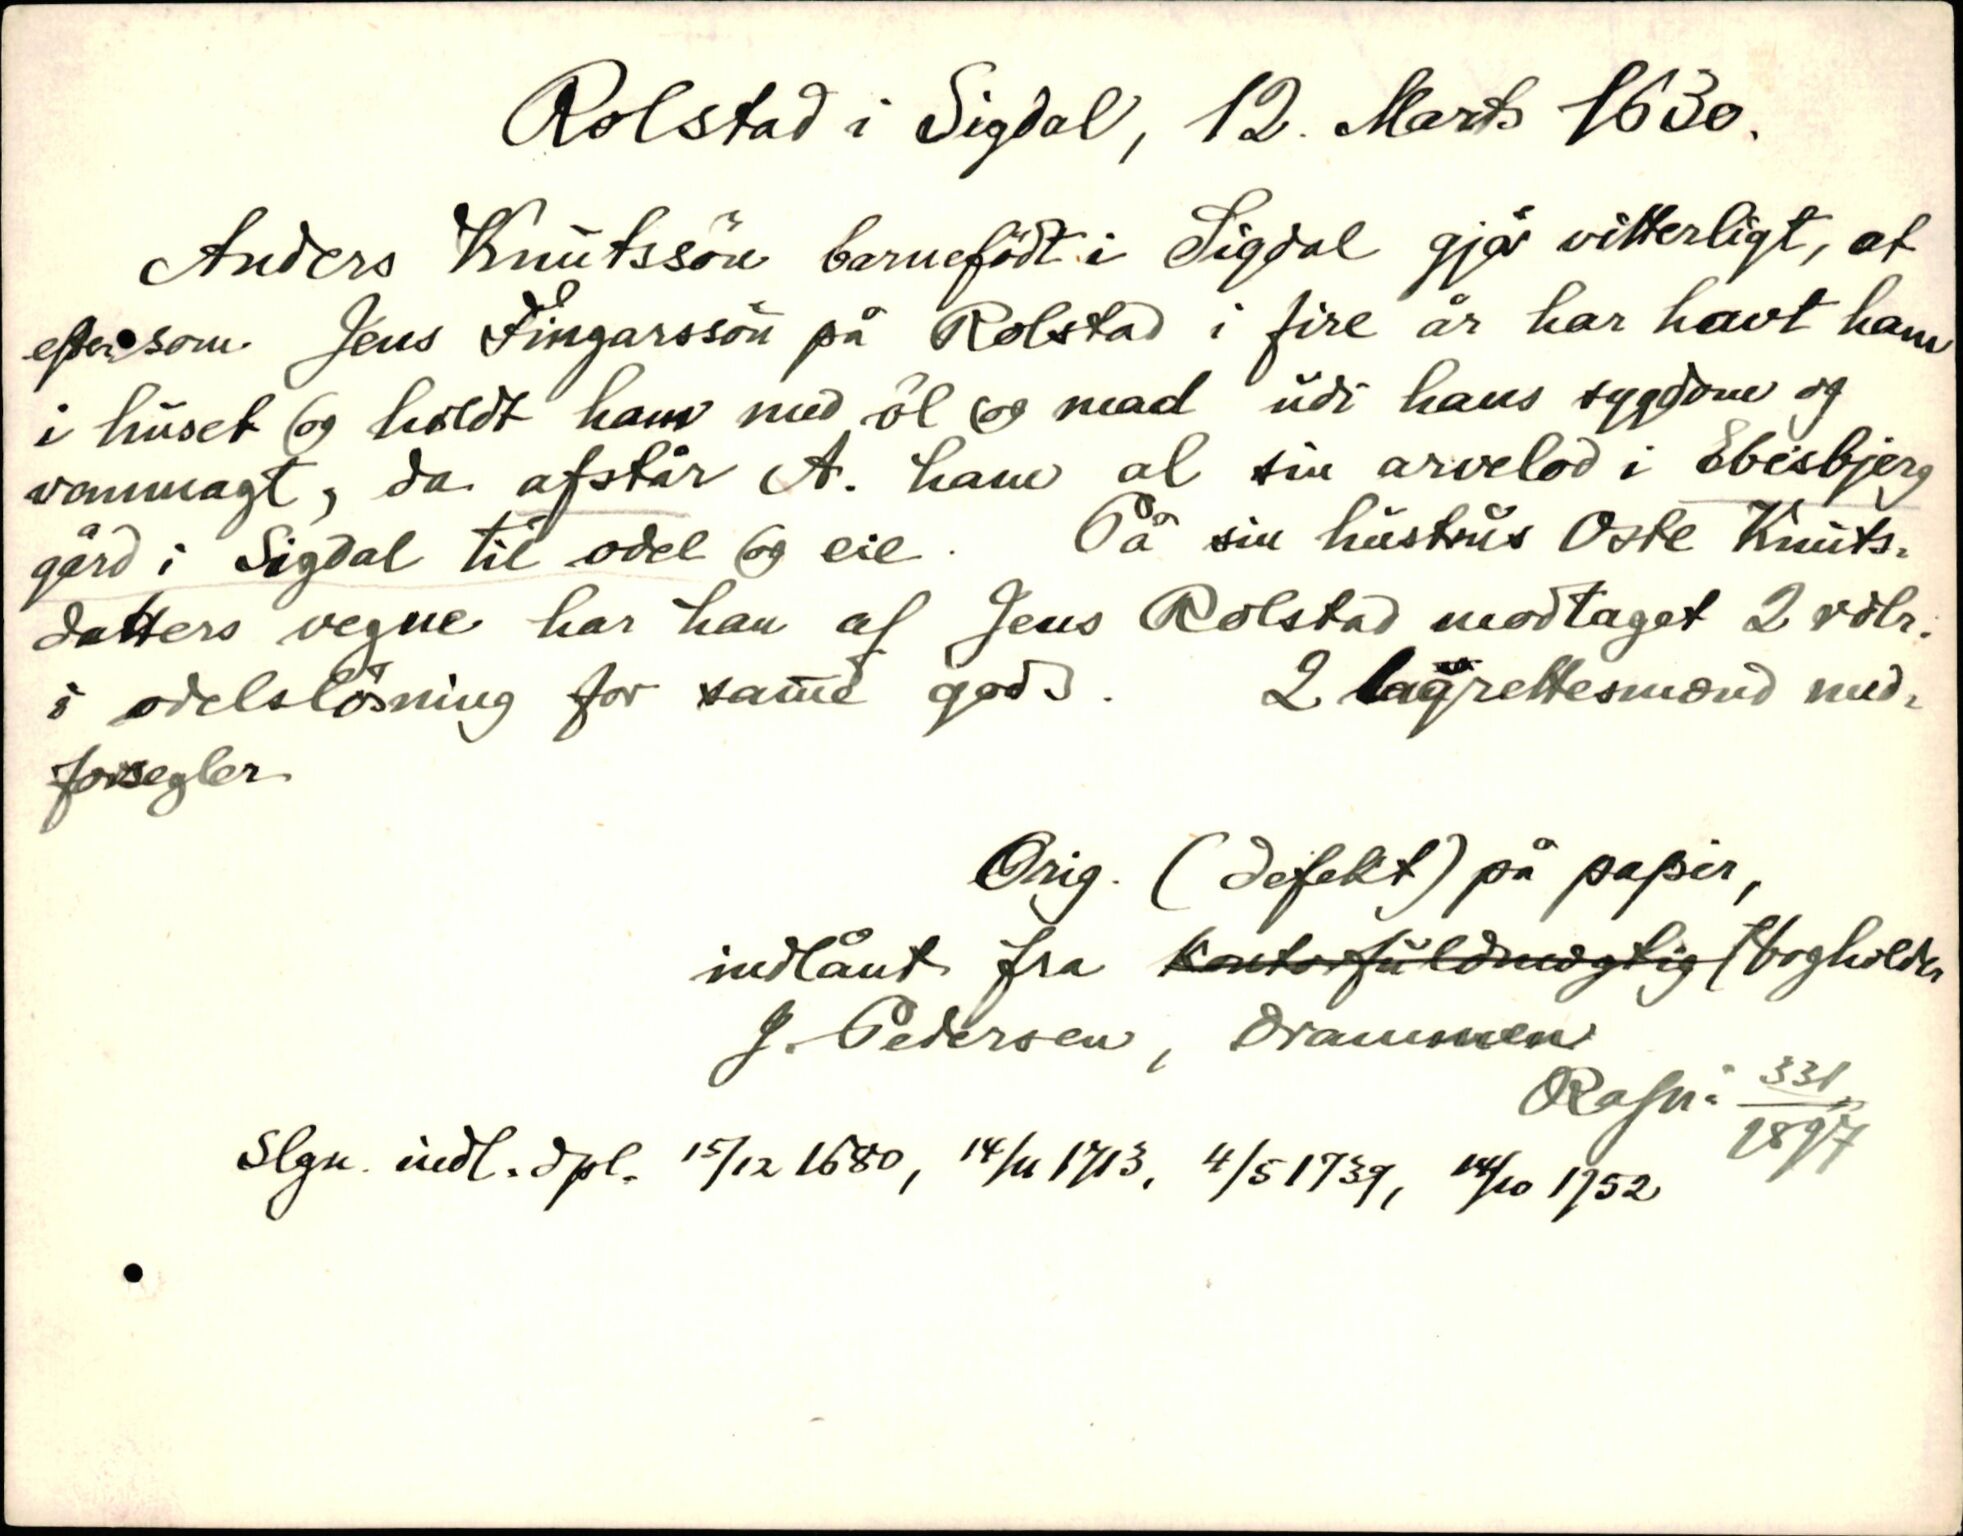 Rolstad i Sigdal, 12. Marts 1630.
Anders Knutssön barnefödt i Sigdal gjör vitterligt, at
eftersom Jens Fingarssön på Rolstad i fire år har havt ham
i huset og holdt ham med öl og mad udi hans sygdom og
vanmagt, da afstår A. ham al sin arvelod i Ebesbjerg
gård i Sigdal til odel og eie. På sin hustrus Oste Knuts-
datters vegne har han af Jens Rolstad modtaget 2 rdlr.
i odelslösning for samme gods. 2 lagrettesmænd med-
forsegler
Orig. (defekt) på papir,
indlånt fra Kontorfuldmægtig bogholder
J. Pedersen, Drammen
331
1897
Slgn. indl. dpl. 15/12 1680, 14/11 1713, 4/5 1739, 14/10 1752